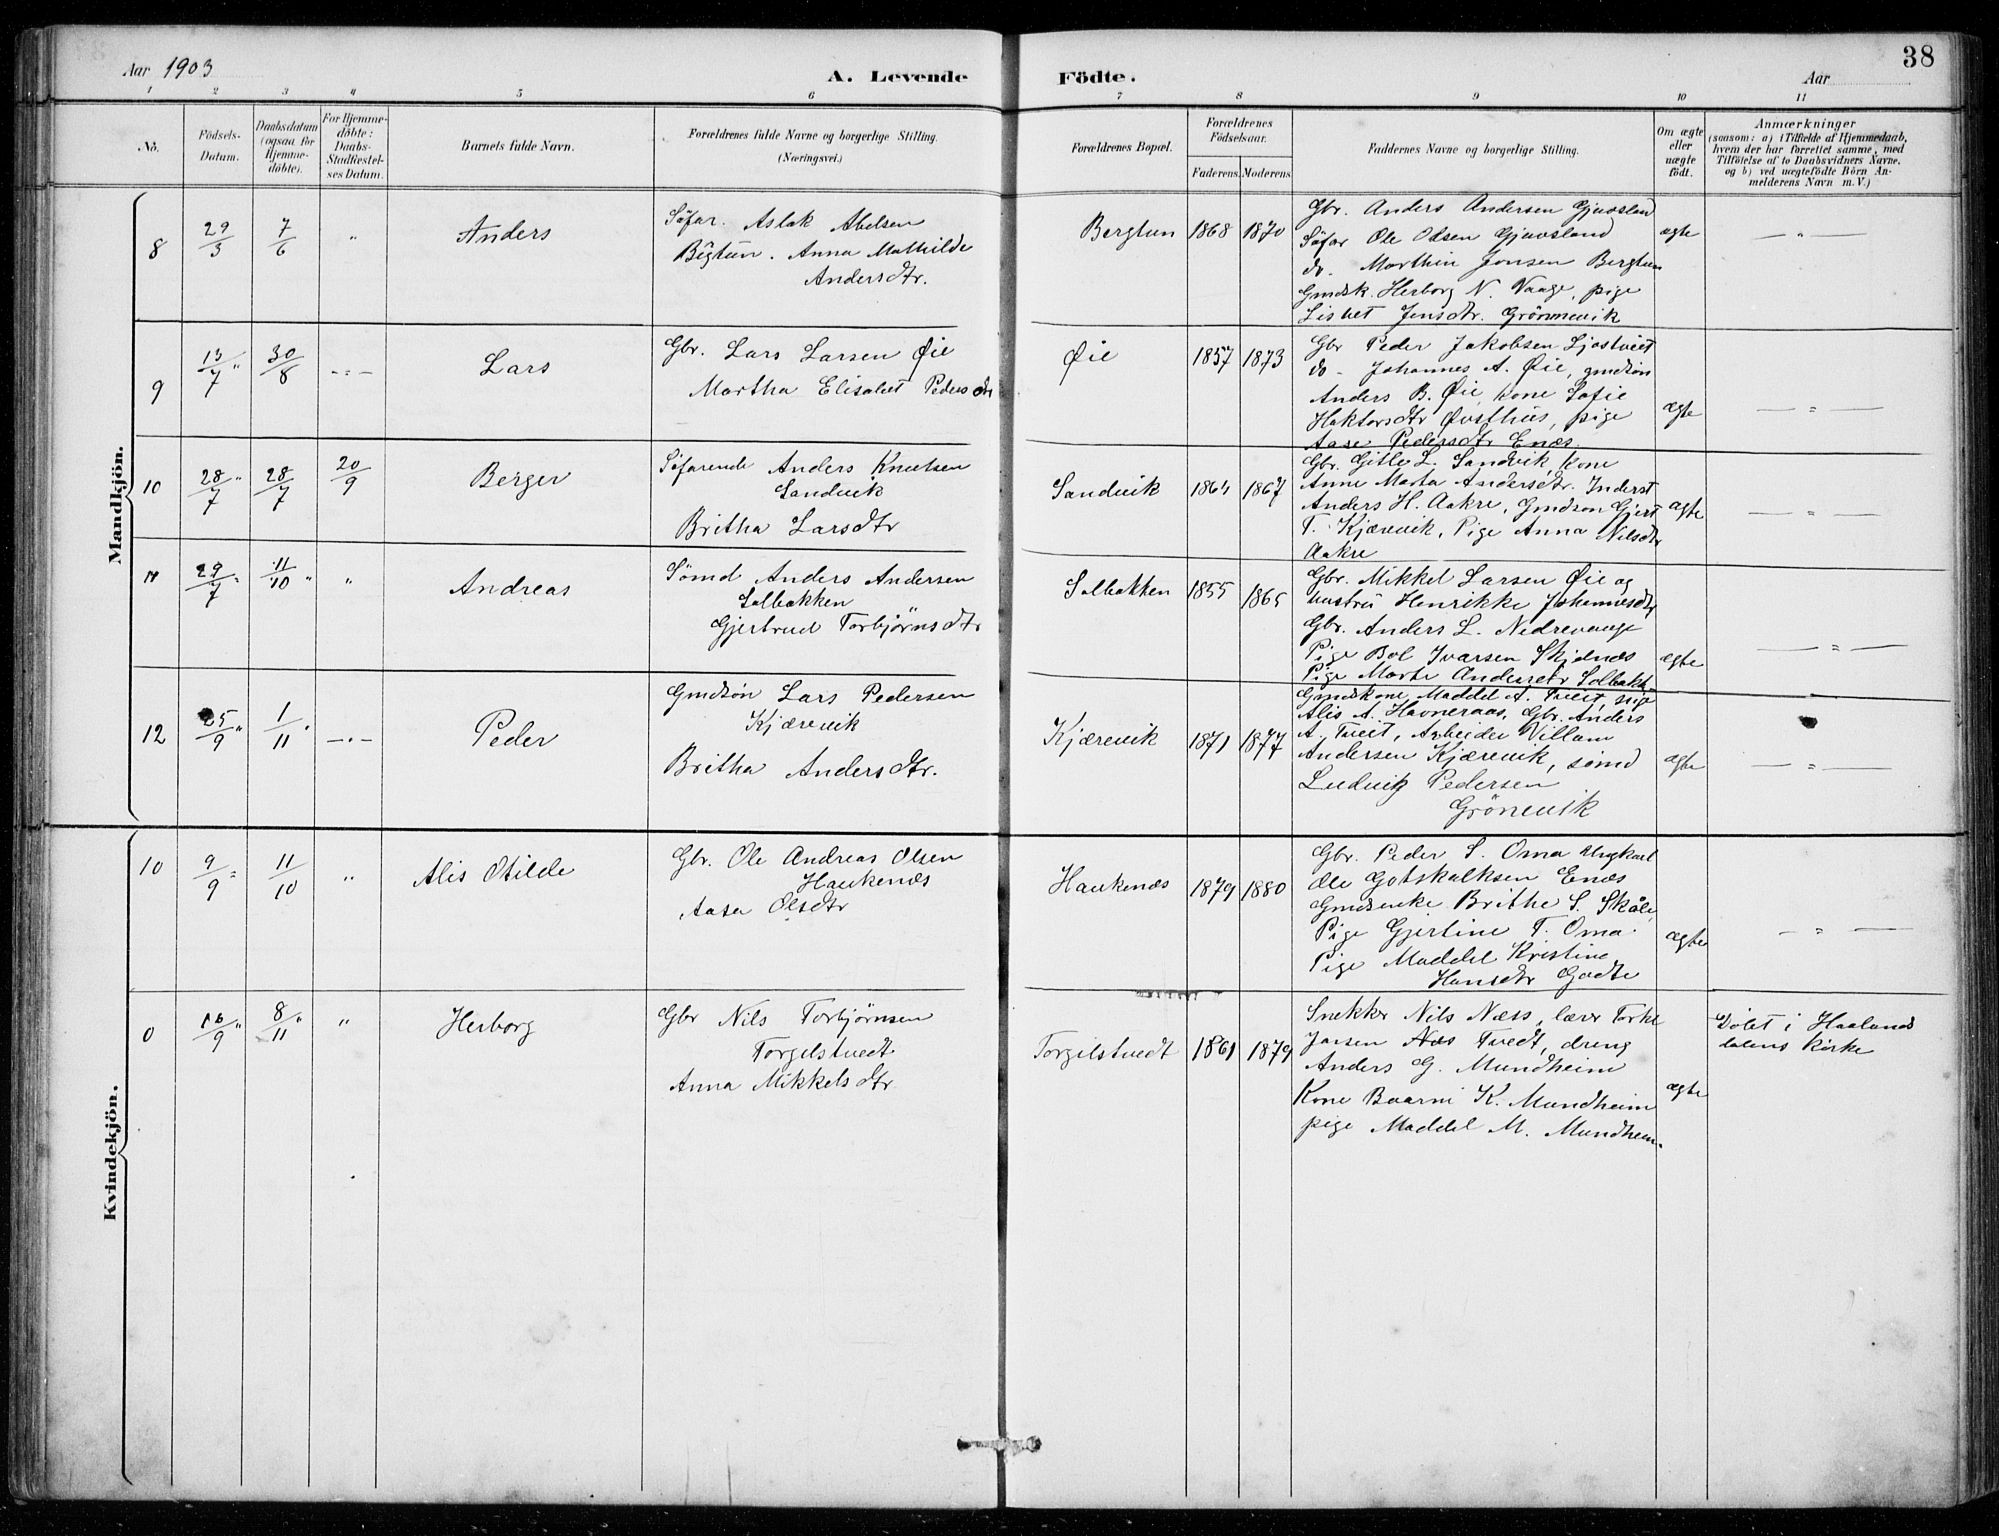 38
Aar 1903
A. Levende
Födte.
Aar
1 2 3 4 5 6 7 8 9 10 11
No.
Födsels-
Datum.
Daabsdatum
(ogsaa for
Hjemme-
döbte).
For Hjemme-
döbte:
Daabs-
Stadfæstel-
ses Datum.
Barnets fulde Navn.
Forældrenes fulde Navne og borgerlige Stilling.
(Næringsvei.)
Forældrenes Bopæl.
Forældrenes
Födselsaar.
Faderens. Moderens.
Faddernes Navne og borgerlige Stilling.
Om ægte
eller
uægte
födt.
Anmærkninger
(saasom: a) i Tilfælde af Hjemmedaab,
hvem der har forrettet samme, med
Tilföielse af to Daabsvidners Navne.
og b) ved uægtefödte Börn An-
melderens Navn m. V.)
Mandkjön.
8
29/3
7/6
"
Anders
Söfar. Aslak Abelsen
Bergtun. Anna Mathilde
Andersdtr.
Bergtun
1868
1870
Gbr. Anders Andersen Gjuvsland
Söfar Ole Olsen Gjuvsland
do. Marthin Jensen Bergtun
Gmdsk. Herborg N. Vaage, pige
Lisbet Jensdtr. Grönnevik
ægte
— " —
9
13/7 "
30/8
— " —
Lars
Gbr. Lars Larsen Øie
Martha Elisabet Pedersdtr
Øie
1857
1873
Gbr Peder Jakobsen Ljostveit
do - Johannes A. Øie, gmdsön
Anders B. Øie, kone Sofie
Haktorsdtr Østhus, pige
Aase Pedersdtr Enæs.
ægte
— " —
10
28/7 "
28/7
20/9
Berger
Söfarende Anders Knutsen
Sandvik
Britha Larsdtr
Sandvik
1864
1867
Gbr. Gitle L. Sandvik, kone
Anne Marta Andersdtr. Inderst
Anders H. Aakre, Gmdsøn Gjert
T. Kjærevik, Pige Anna Nilsdtr
Aakre
ægte
— " —
11
29/7 "
11/10 "
"
Andreas
Sömd Anders Andersen
Solbakken
Gjertrud Torbjörnsdtr
Solbakken
1855
1865
Gbr. Mikkel Larsen Øie og
hustru Henrikke Johannesdtr
Gbr. Anders L. Nedrevaage
Pige Bol Ivarsen Skjelnes
Pige Marte Andersdtr Solbakk
ægte
— " —
12
25/9 "
1/11 "
— " —
Peder
Gmdsön Lars Pedersen
Kjærevik
Britha Andersdtr.
Kjærevik
1871
1877
Gmdskone Maddel A. Tveit, pige
Alis A. Havneraas, Gbr. Anders
A. Tveit, Arbeider Villam
Andersen Kjærevik, sömd
Ludvig Pedersen
Grönevik
ægte
— " —
Kvindekjön.
10
9/9 "
11/10
"
Alis Otilde
Gbr. Ole Andreas Olsen
Haukenæs
Aasa Olsdtr
Haukenæs
1879
1880
Gbr. Peder S. Oma Ungkarl
Ole Gotskalksen Enæs
Gmdsenke Brithe S. Skåle,
Pige Gjertine T. Oma.
Pige Maddel Kristina
Hansdtr Godte
ægte
— " —
0
16/9 "
8/11 "
"
Herborg
Gbr Nils Torbjörnsen
Torgilstvedt
Anna Mikkelsdtr.
Torgilstvedt
1861
1879
Snekker Nils Næss, lærer Torkel
Jarsen Næs Tvedt, dreng
Anders G. Mundheim
Kone Baarni K. Mundheim
pige Maddel M. Mundheim.
ægte
Döbt i Haalands
dalens Kirke